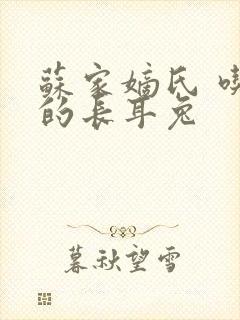 蘇家嫡氏
的長耳兔
暮秋望雪